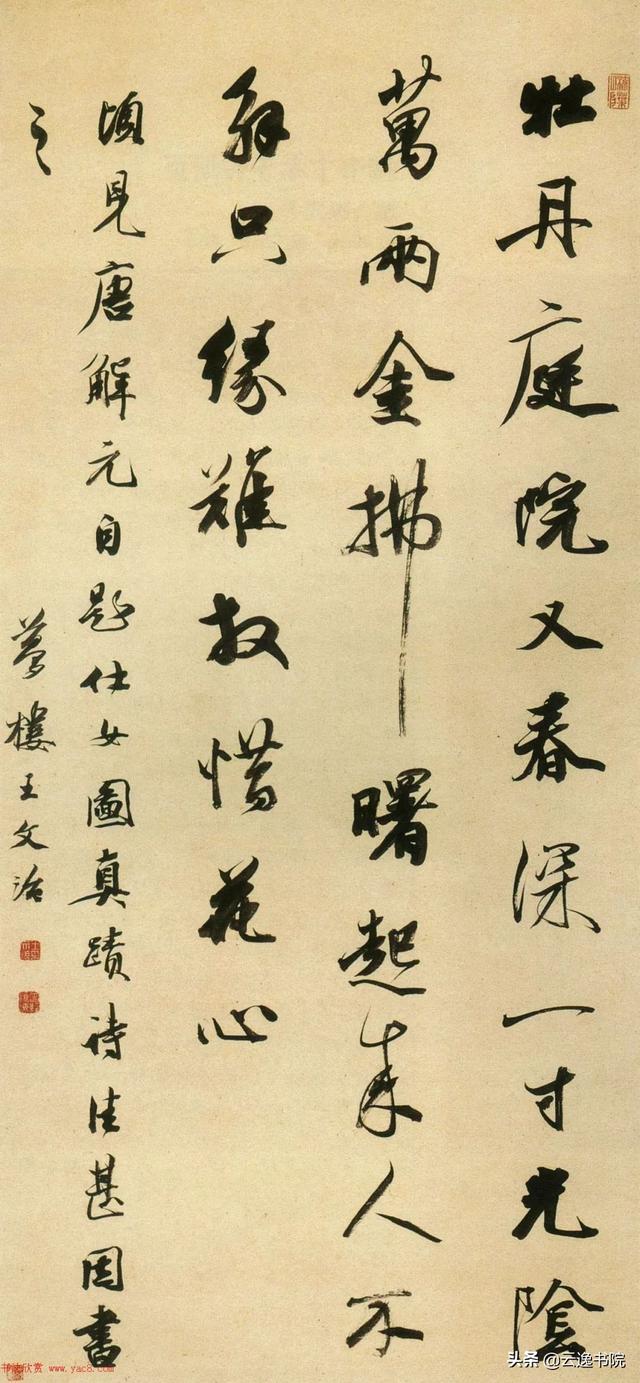 牡丹庭院又春深一寸光陰
萬兩金拂曙起來人不
解只緣難放惜花心
頃見唐解元自題仕女圖真蹟詩佳甚因書
之
夢樓王文治
书法欣赏 www.yac8.com
头条 @云逸书院